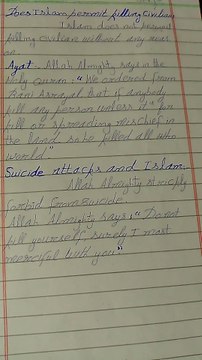 Does Islam permit killing civilians
Islam does not permit
killing civilians without any reas
on.
Ayat: Allah Almighty says in the
Holy Quran: "We ordered from
Bani Israyal that if anybody
kill any person unless it for
kill or spreading mischief in
the land so he killed all who
world."
Suicide attacks and Islam.
Allah Almighty strictly
forbid from suicide.
Allah Almighty says, "Do not
kill yourself surely I most
merciful with you."